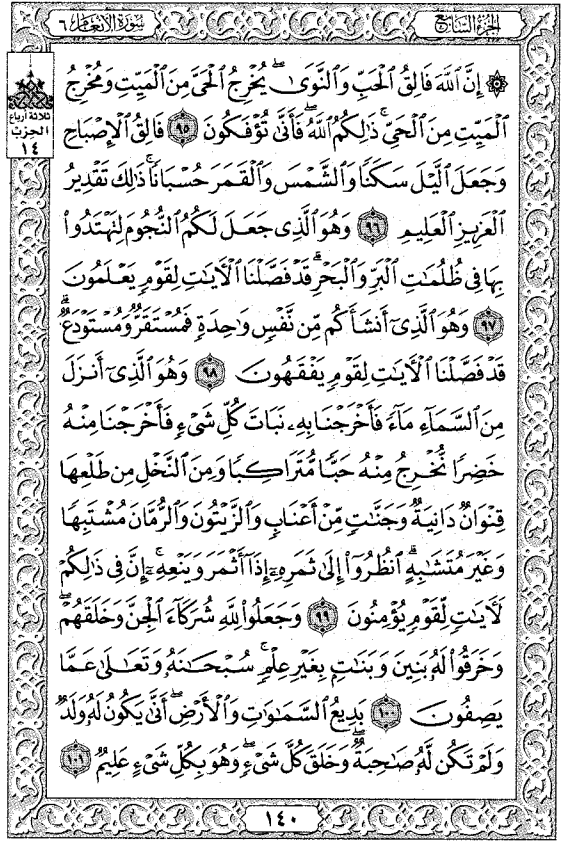 الجزء السابع
سورة الأنعام ٦
ثلاثة أرباع
الحزب
١٤
۞ إِنَّ ٱللَّهَ فَالِقُ ٱلْحَبِّ وَٱلنَّوَىٰ ۖ يُخْرِجُ ٱلْحَىَّ مِنَ ٱلْمَيِّتِ وَمُخْرِجُ
ٱلْمَيِّتِ مِنَ ٱلْحَىِّ ۚ ذَٰلِكُمُ ٱللَّهُ ۖ فَأَنَّىٰ تُؤْفَكُونَ ٩٥ فَالِقُ ٱلْإِصْبَاحِ
وَجَعَلَ ٱلَّيْلَ سَكَنًا وَٱلشَّمْسَ وَٱلْقَمَرَ حُسْبَانًا ۚ ذَٰلِكَ تَقْدِيرُ
ٱلْعَزِيزِ ٱلْعَلِيمِ ٩٦ وَهُوَ ٱلَّذِى جَعَلَ لَكُمُ ٱلنُّجُومَ لِتَهْتَدُوا۟
بِهَا فِى ظُلُمَٰتِ ٱلْبَرِّ وَٱلْبَحْرِ ۗ قَدْ فَصَّلْنَا ٱلْءَايَٰتِ لِقَوْمٍ يَعْلَمُونَ
٩٧ وَهُوَ ٱلَّذِىٓ أَنشَأَكُم مِّن نَّفْسٍ وَٰحِدَةٍ فَمُسْتَقَرٌّ وَمُسْتَوْدَعٌ ۗ
قَدْ فَصَّلْنَا ٱلْءَايَٰتِ لِقَوْمٍ يَفْقَهُونَ ٩٨ وَهُوَ ٱلَّذِىٓ أَنزَلَ
مِنَ ٱلسَّمَآءِ مَآءً فَأَخْرَجْنَا بِهِۦ نَبَاتَ كُلِّ شَىْءٍ فَأَخْرَجْنَا مِنْهُ
خَضِرًا نُّخْرِجُ مِنْهُ حَبًّا مُّتَرَاكِبًا وَمِنَ ٱلنَّخْلِ مِن طَلْعِهَا
قِنْوَانٌ دَانِيَةٌ وَجَنَّٰتٍ مِّنْ أَعْنَابٍ وَٱلزَّيْتُونَ وَٱلرُّمَّانَ مُشْتَبِهًا
وَغَيْرَ مُتَشَٰبِهٍ ۗ ٱنظُرُوٓا۟ إِلَىٰ ثَمَرِهِۦٓ إِذَآ أَثْمَرَ وَيَنْعِهِۦٓ ۚ إِنَّ فِى ذَٰلِكُمْ
لَءَايَٰتٍ لِّقَوْمٍ يُؤْمِنُونَ ٩٩ وَجَعَلُوا۟ لِلَّهِ شُرَكَآءَ ٱلْجِنَّ وَخَلَقَهُمْ ۖ
وَخَرَقُوا۟ لَهُۥ بَنِينَ وَبَنَٰتٍۭ بِغَيْرِ عِلْمٍ ۚ سُبْحَٰنَهُۥ وَتَعَٰلَىٰ عَمَّا
يَصِفُونَ ١٠٠ بَدِيعُ ٱلسَّمَٰوَٰتِ وَٱلْأَرْضِ ۖ أَنَّىٰ يَكُونُ لَهُۥ وَلَدٌ
وَلَمْ تَكُن لَّهُۥ صَٰحِبَةٌ ۖ وَخَلَقَ كُلَّ شَىْءٍ ۖ وَهُوَ بِكُلِّ شَىْءٍ عَلِيمٌ ١٠١
١٤٠